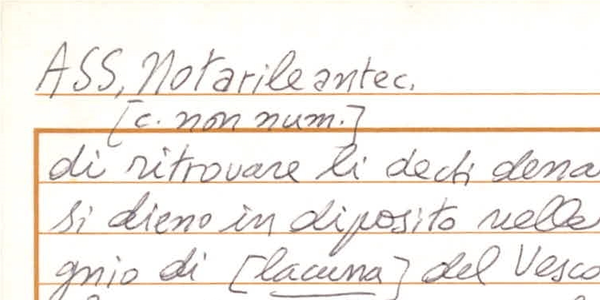 ASS, Notarile antec.
[c. non num.]
di ritrovare li decti dena
si dieno in diposito nelle
gnio di [lacuna] del Vesco